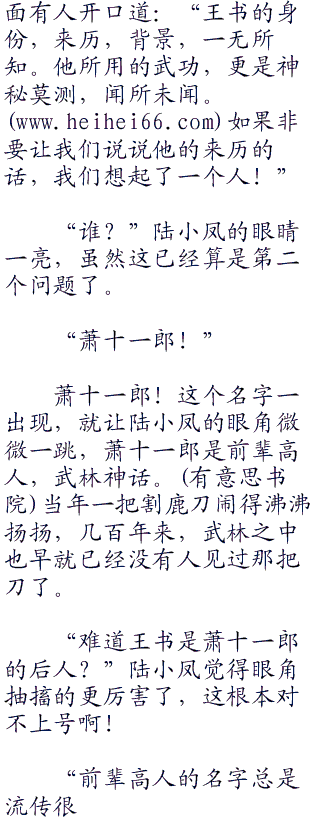 面有人开口道：“王书的身
份，来历，背景，一无所
知。他所用的武功，更是神
秘莫测，闻所未闻。
(www.heihei66.com)如果非
要让我们说说他的来历的
话，我们想起了一个人！”
“谁？”陆小凤的眼睛
一亮，虽然这已经算是第二
个问题了。
“萧十一郎！”
萧十一郎！这个名字一
出现，就让陆小凤的眼角微
微一跳，萧十一郎是前辈高
人，武林神话。(有意思书
院)当年一把割鹿刀闹得沸沸
扬扬，几百年来，武林之中
也早就已经没有人见过那把
刀了。
“难道王书是萧十一郎
的后人？”陆小凤觉得眼角
抽搐的更厉害了，这根本对
不上号啊！
“前辈高人的名字总是
流传很